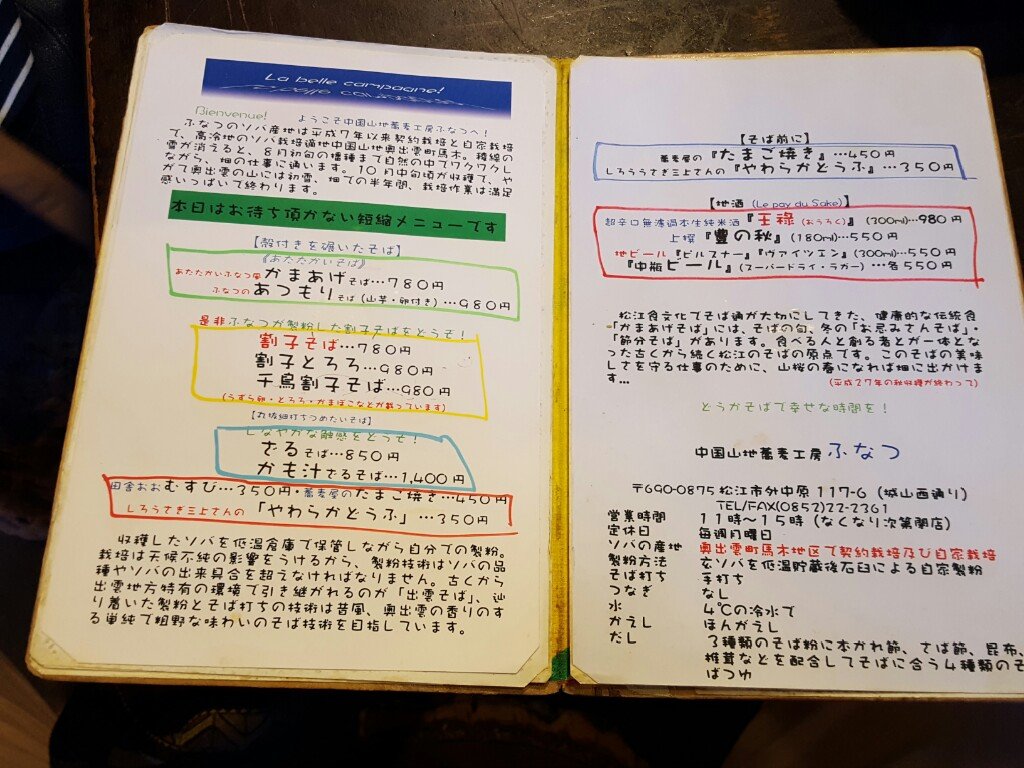 La belle campagne!
Bienvenue! ようこそ中国山地蕎麦工房ふなつへ！
ふなつのソバ産地は平成7年以来契約栽培と自家栽培
で、高冷地のソバ栽培適地中国山地奥出雲町馬木。稜線の
雲が消えると、8月初旬の播種まで自然の中でワクワクし
ながら、畑の仕事に通います。10月中旬頃が収穫で、や
がて奥出雲の山には初雪、畑での半年間、栽培作業は満足
感いっぱいで終わります。
本日はお待ち頂かない短縮メニューです
【殻付きを碾いたそば】
『あたたかいそば』
あたたかいふなつ風かまあげそば…780円
ふなつのあつもりそば（山芋・卵付き）…980円
是非ふなつが製粉した割子そばをどうぞ！
割子そば…780円
割子とろろ…980円
千鳥割子そば…980円
（うずら卵・とろろ・かまぼこなどが載っています）
【丸抜細打ちつめたいそば】
しなやかな触感をどうぞ！
ざるそば…850円
かも汁ざるそば…1,400円
田舎おおむすび…350円・蕎麦屋のたまご焼き…450円
しろうさぎ三上さんの「やわらかとうふ」…350円
収穫したソバを低温倉庫で保管しながら自分での製粉。
栽培は天候不純の影響をうけるから、製粉技術はソバの品
種やソバの出来具合を超えなければなりません。古くから
出雲地方特有の環境で引き継がれるのが「出雲そば」、辿
り着いた製粉とそば打ちの技術は昔風、奥出雲の香りのす
る単純で粗野な味わいのそば技術を目指しています。
【そば前に】
蕎麦屋の『たまご焼き』…450円
しろううさぎ三上さんの『やわらかとうふ』…350円
【地酒（Le pay du Sake）】
超辛口無濾過本生純米酒『王祿（おうろく）』（300ml)…980円
上撰『豊の秋』(180ml)…550円
地ビール『ピルスナー』『ヴァイツェン』(300ml)…550円
『中瓶ビール』（スーパードライ・ラガー）…各550円
松江食文化てそば通が大切にしてきた、健康的な伝統食
「かまあげそば」には、そばの旬、冬の「お忌みさんそば」・
「節分そば」があります。食べる人と創る者とが一体とな
った古くから続く松江のそばの原点です。このそばの美味
しさを守る仕事のために、山桜の春になれば畑に出かけま
す…
（平成27年の秋収穫が終わって）
どうかそばで幸せな時間を！
中国山地蕎麦工房 ふなつ
〒690-0875 松江市外中原117-6（城山西通り）
TEL/FAX(0852)22-2361
営業時間 11時～15時（なくなり次第閉店）
定休日 毎週月曜日
ソバの産地 奥出雲町馬木地区で契約栽培及び自家栽培
製粉方法 玄ソバを低温貯蔵後石臼による自家製粉
そば打ち 手打ち
つなぎ なし
水 4℃の冷水で
かえし ほんがえし
だし 3種類のそば粉に本かれ節、さば節、昆布、
椎茸などを配合してそばに合う4種類のそ
ばつゆ